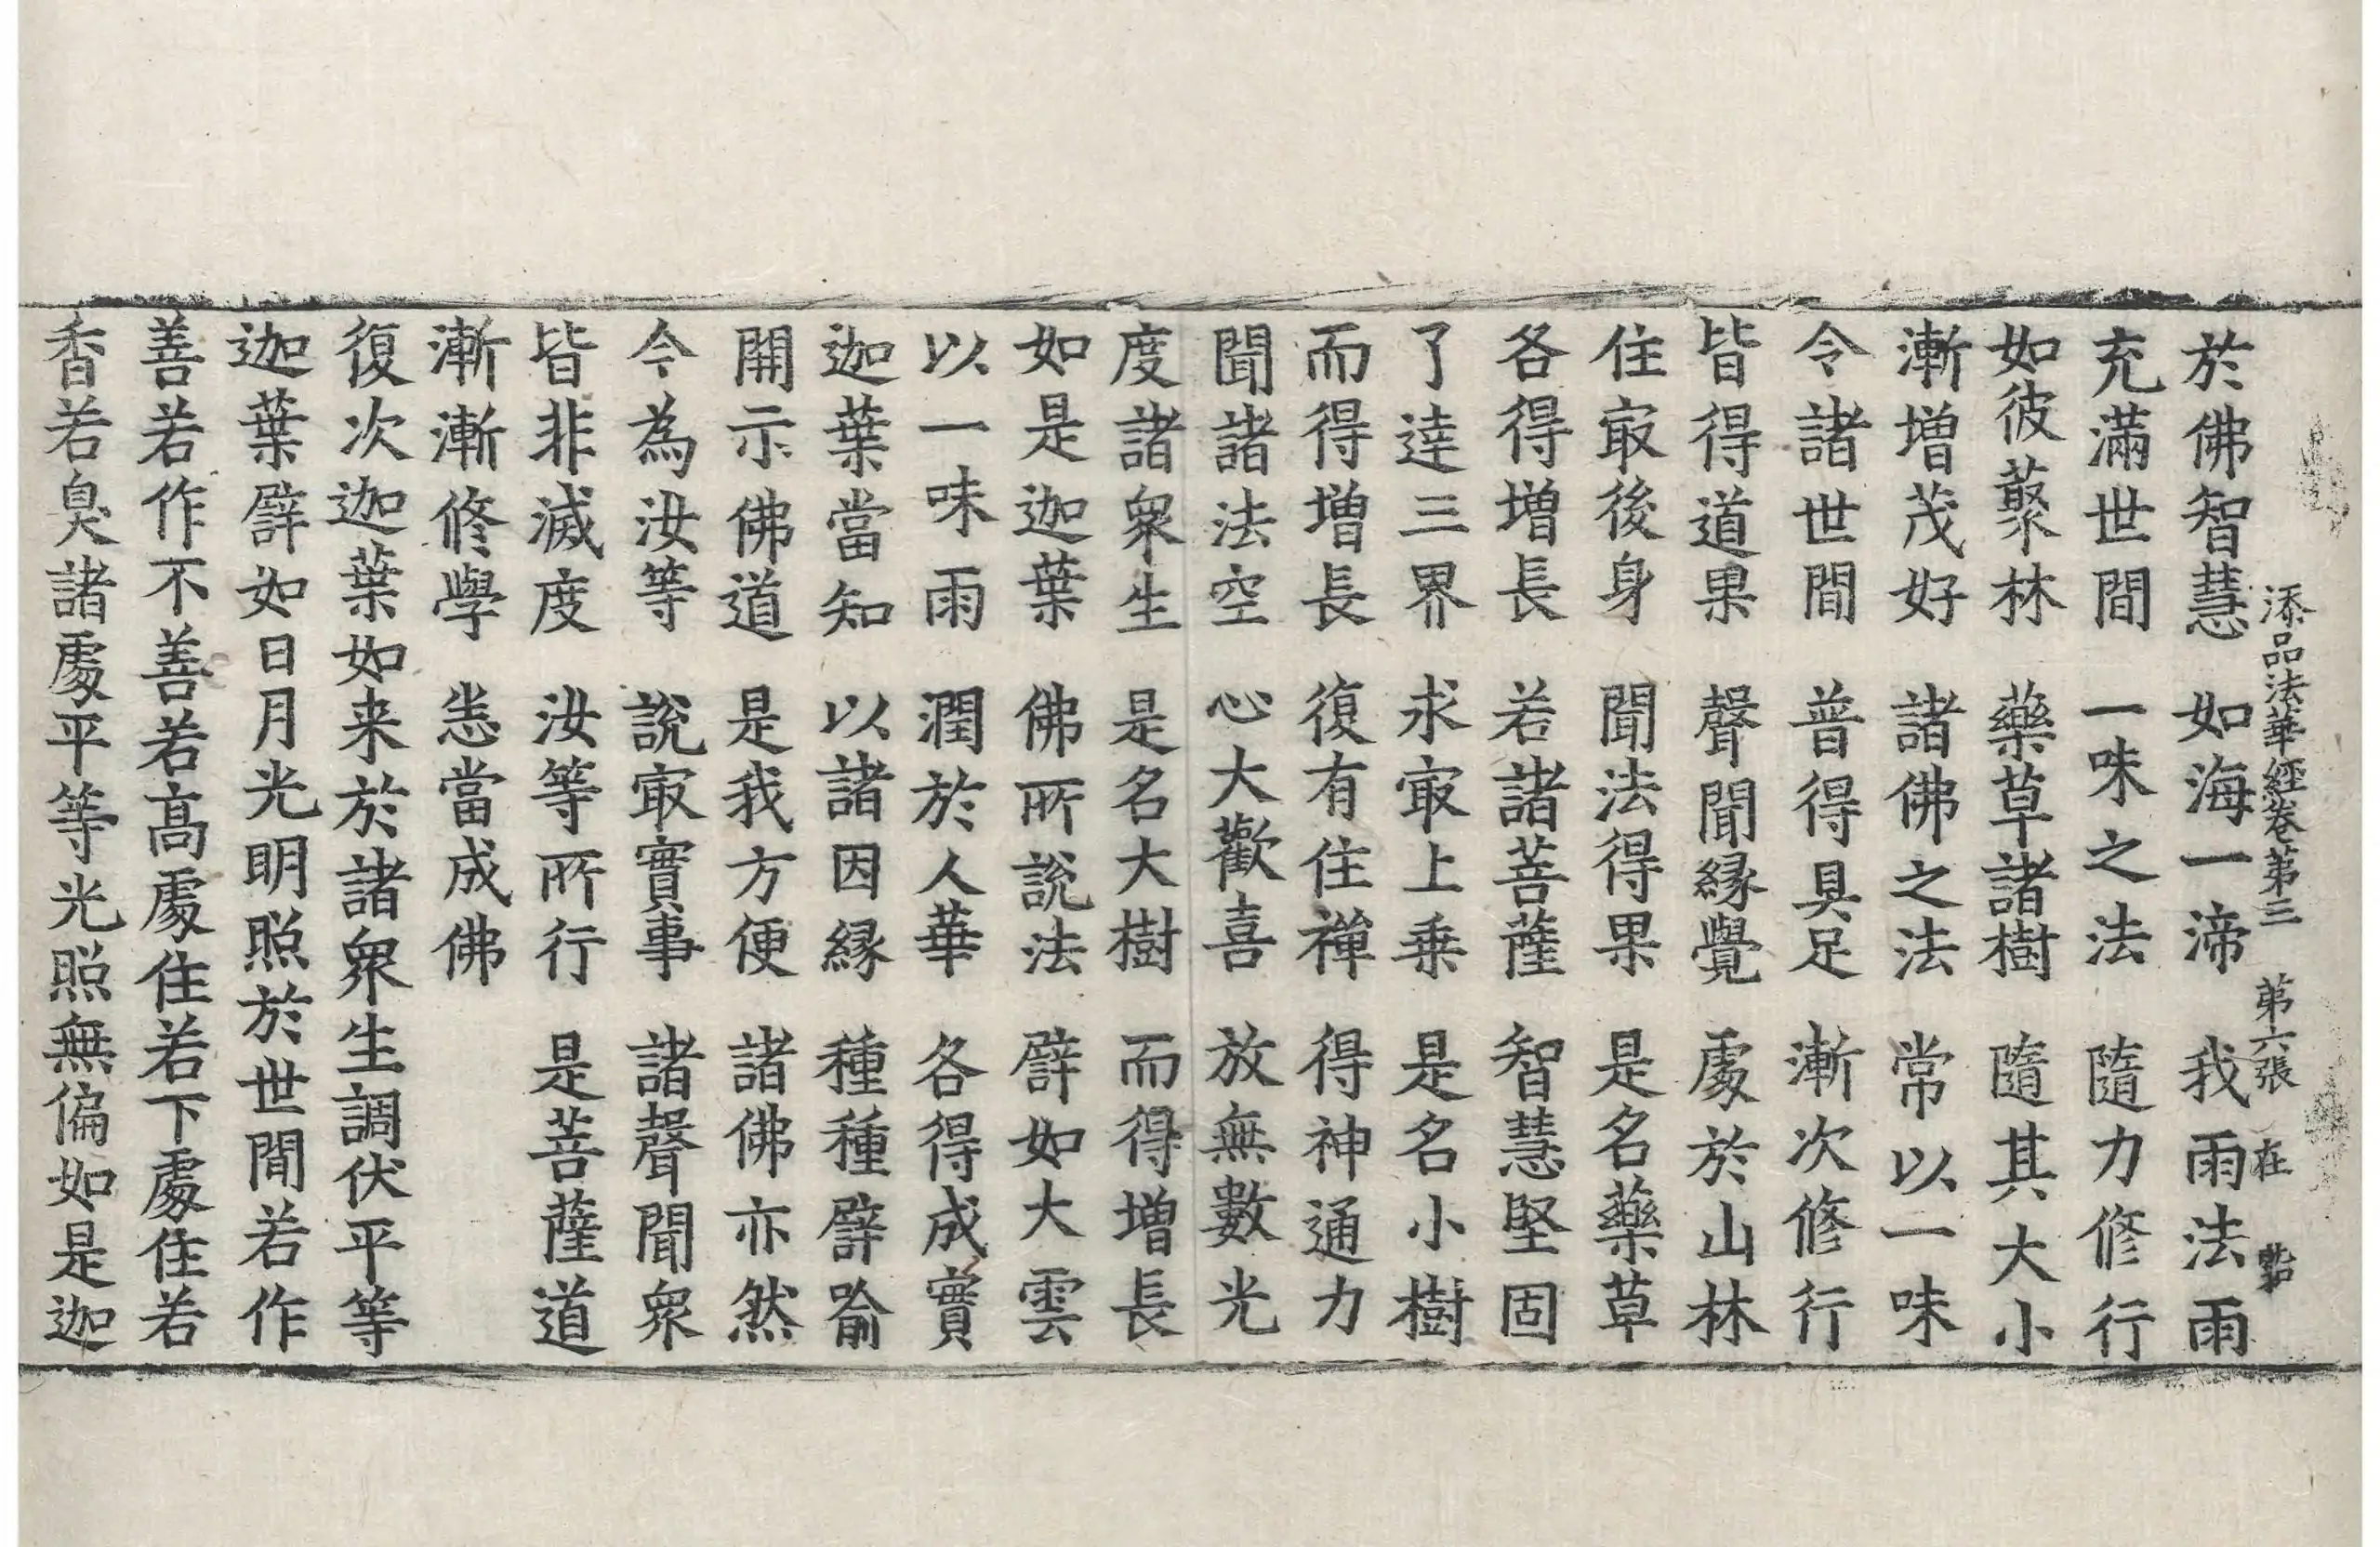 添品法華經卷第三 第六張 在
於佛智慧 如海一渧 我雨法雨
充滿世間 一味之法 隨力修行
如彼藂林 藥草諸樹 隨其大小
漸增茂好 諸佛之法 常以一味
令諸世間 普得具足 漸次修行
皆得道果 聲聞緣覺 處於山林
住㝡後身 聞法得果 是名藥草
各得增長 若諸菩薩 智慧堅固
了達三界 求㝡上乘 是名小樹
而得增長 復有住禪 得神通力
聞諸法空 心大歡喜 放無數光
度諸衆生 是名大樹 而得增長
如是迦葉 佛所說法 譬如大雲
以一味雨 潤於人華 各得成實
迦葉當知 以諸因緣 種種譬喻
開示佛道 是我方便 諸佛亦然
今為汝等 說㝡實事 諸聲聞衆
皆非滅度 汝等所行 是菩薩道
漸漸修學 悉當成佛
復次迦葉如来於諸衆生調伏平等
迦葉譬如日月光明照於世間若作
善若作不善若高處住若下處住若
香若臭諸處平等光照無偏如是迦